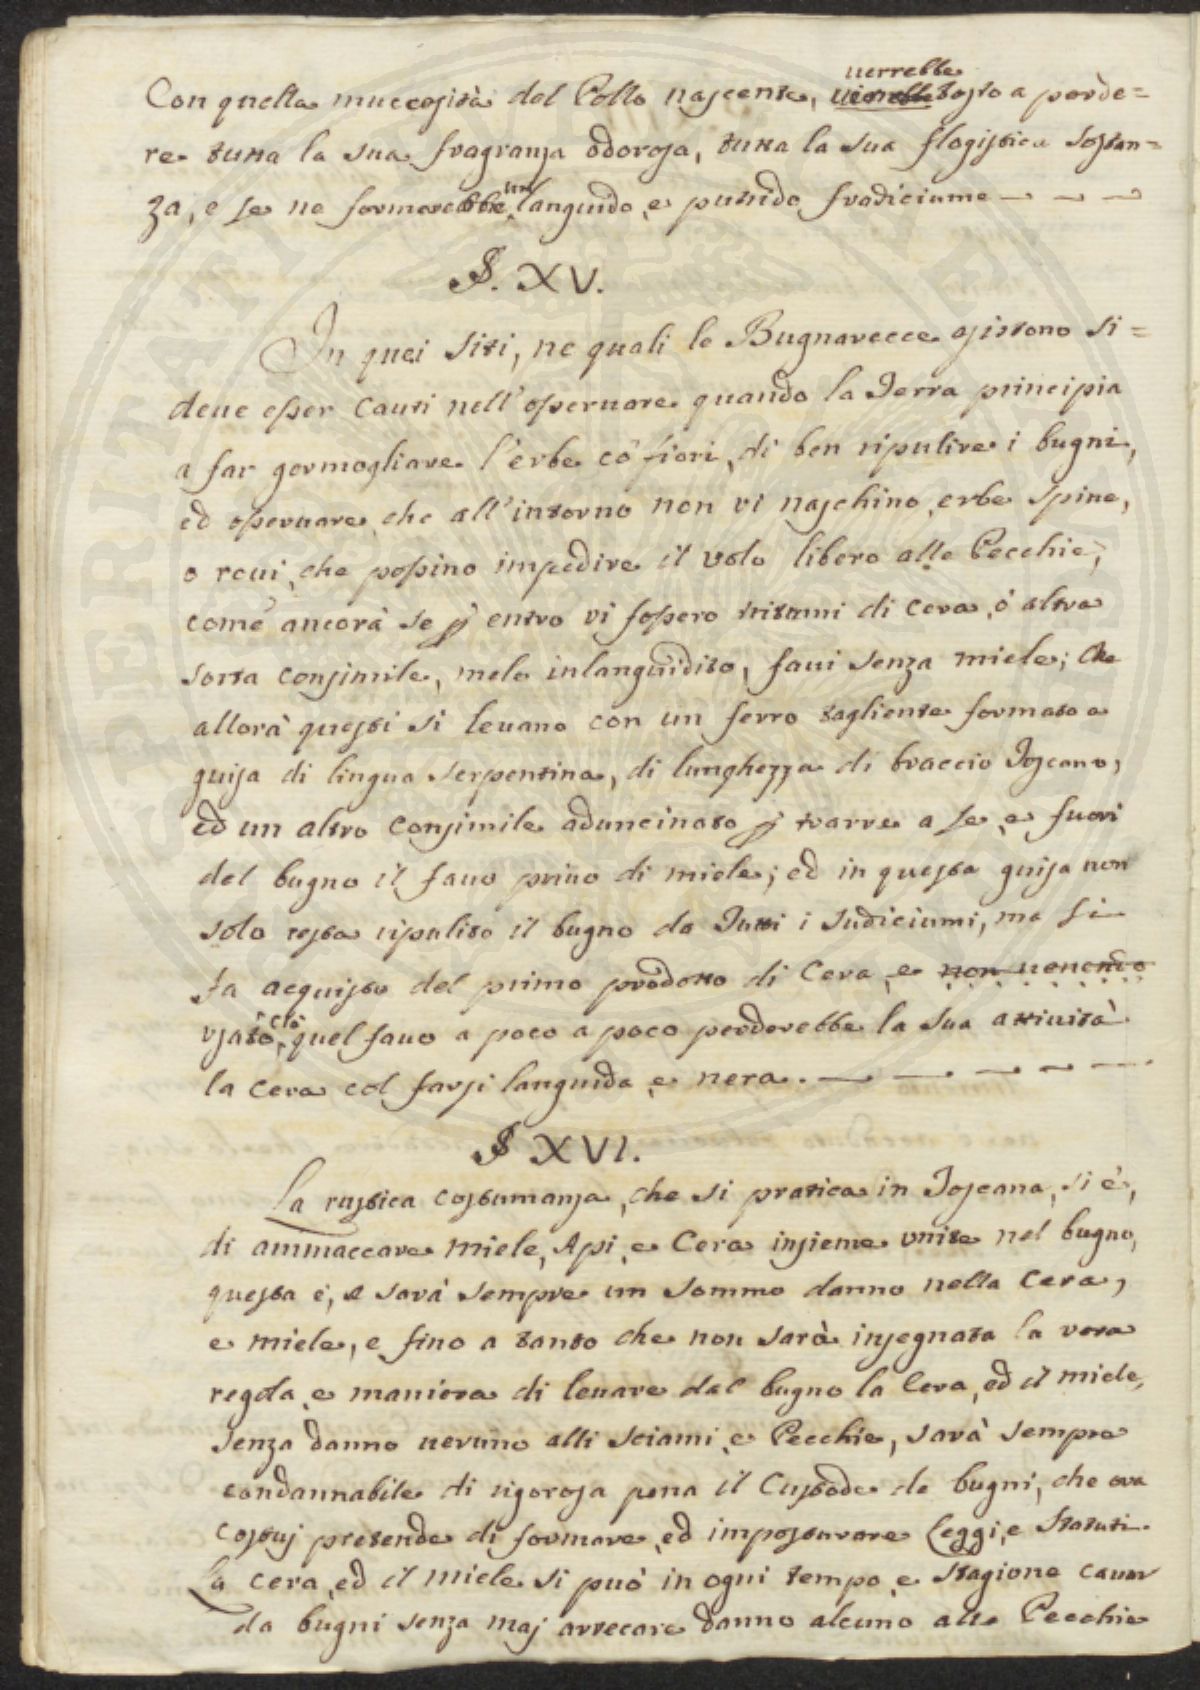 Con quella muccosità del Pollo nascente, verrebbe tosto a perde=
re tutta la sua fragranza odorosa, tutta la sua flogistica sostan=
za, e se ne formerebbe un languido e putrido fradiciume
§. XV.
In quei siti, ne quali le Bugnarecce esistono si=
deue esser Cauti nell'osseruare quando la Terra principia
a far germogliare l'erbe cò fiori, di ben ripulire i bugni,
ed osseruare che all'intorno non vi naschino erbe spine,
o roui, che possino impedire il volo libero alle Pecchie,
come ancorà se p entro vi fossero tritumi di Cera, ò altra
sorta consimile, mele inlanguidito, faui senza miele; Che
allorà questi si leuano con un ferro tagliente formato a
guisa di lingua serpentina, di lunghezza di braccio Toscano,
ed un altro Consimile aduncinato p trarre a se, e fuori
del bugno il fauo priuo di miele; ed in questa guisa non
solo resta ripulito il bugno da Tutti i sudiciumi, ma si
fa acquisto del primo prodotto di Cera, e non uenendo
usato ciò, quel fauo a poco a poco perderebbe la sua attiuità
la Cera col farsi languida e nera.
§ XVI.
La rustica costumanza, che si pratica in Toscana, si è,
di ammaccare Miele, Api, e Cera insieme unite nel bugno,
questa è, e sarà sempre un sommo danno nella Cera,
e miele, e fino a tanto che non sarà insegnata la vera
regola, e maniera di leuare dal bugno la Cera, ed il miele,
senza danno ueruno alli sciami, e Pecchie, sarà sempre
condannabile di rigorosa pena il Custode de bugni, che ora
costuj pretende di formare, ed imposturare Leggi, e Statuti.
La Cera, ed il miele si può in ogni tempo, e stagione cauar
da bugni senza maj arrecare danno alcuno alle Pecchie